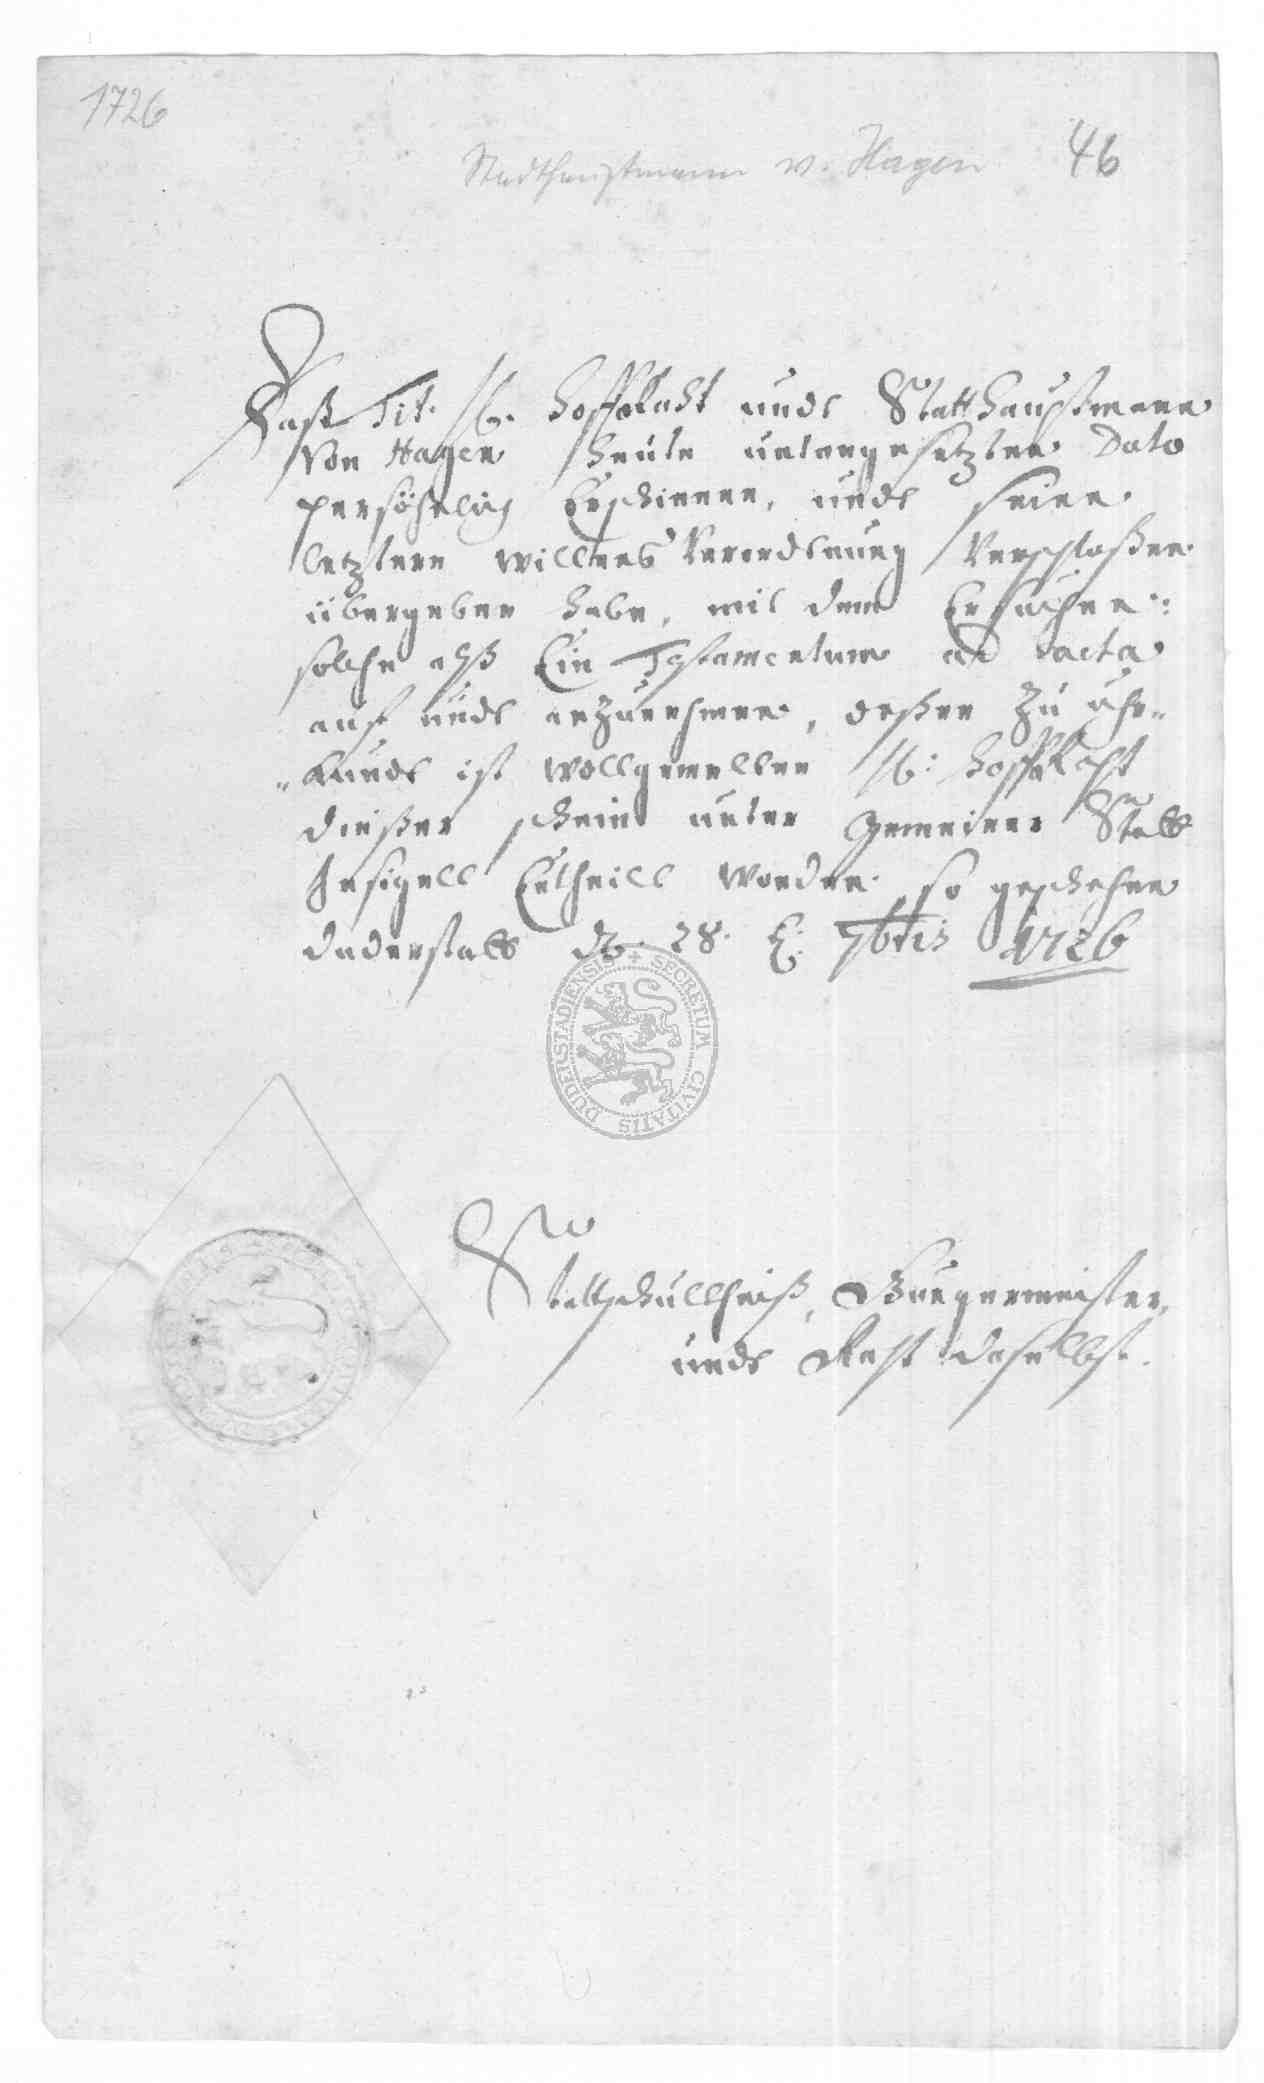 1726
Stadthauptmann v. Hagen 46
Daß Tit. H. Hoffraht undt Statthaubtmann
Von Hagen heute untengesetzten Dato
persöhnlig Erschienen, undt seine
letztere willens Verordtnung Verschloßen
übergeben habe, mit dem Ersuchen:
solche alß Ein Testamentum ad acta
auf undt anzunehmen, deßen zu uhr-
kundt ist wollgemelten H: Hoffraht
dießer schein unter gemeiner Statt
Insigell Ertheilt worden. so geschehen
duderstatt d. 28. 7bris 1726
SECRETUM CIVITATIS DUDERSTADIENSIS
Stattschultheiß, Bürgermeister,
undt Raht daselbst.